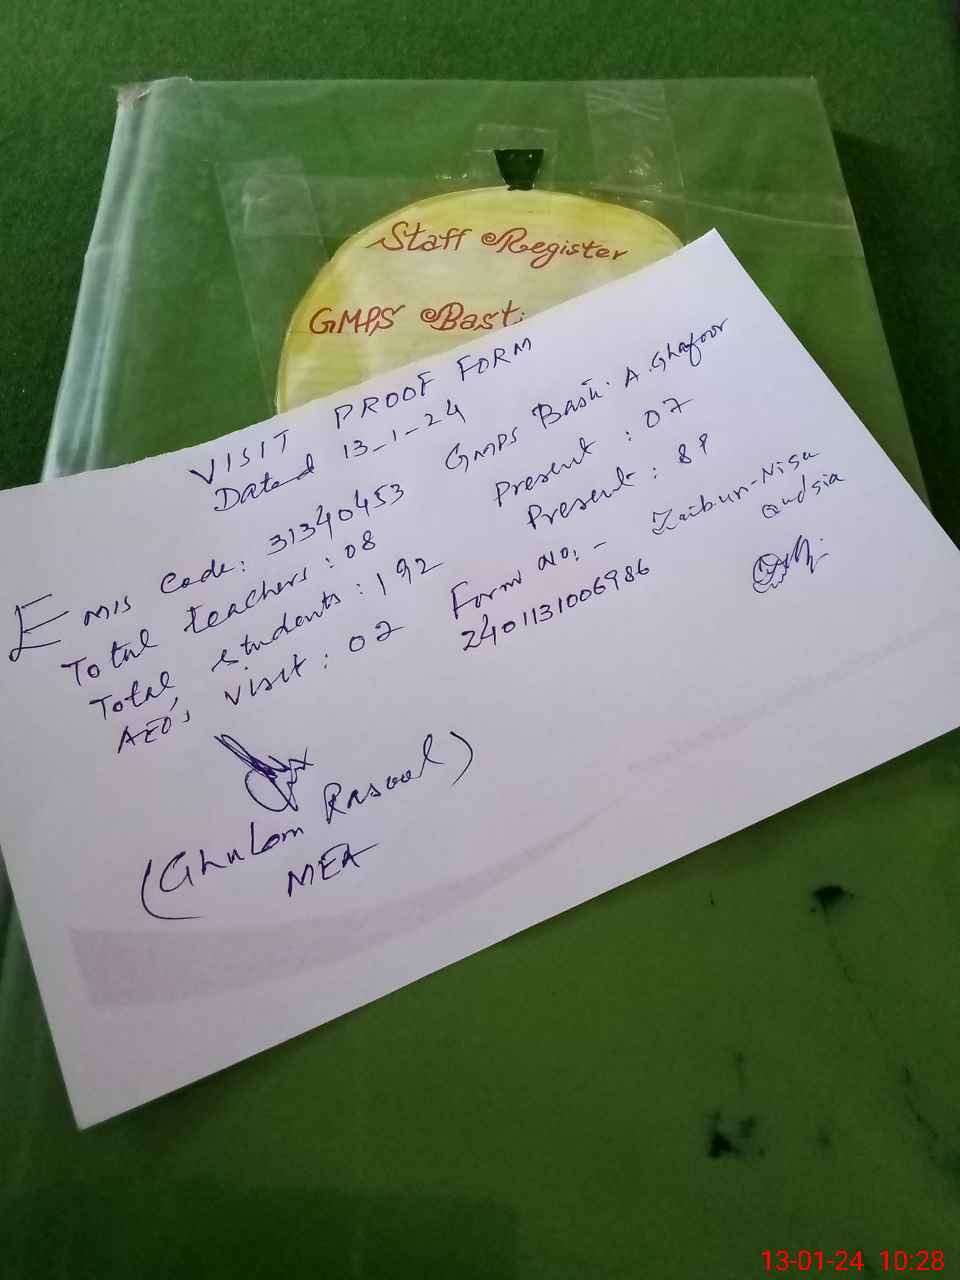 Staff Register
GMPS Basti
VISIT PROOF FORM
Dated 13-1-24
Emis Code: 31340453 GMPS Basti A. Ghafoor
Total teachers: 08 Present : 07
Total students: 192 Present : 89
AEO's visit: 02 Form No:- Zaib-un-Nisa
2401131006986 Qudsia
(Ghulam Rasool)
MEA
13-01-24 10:28